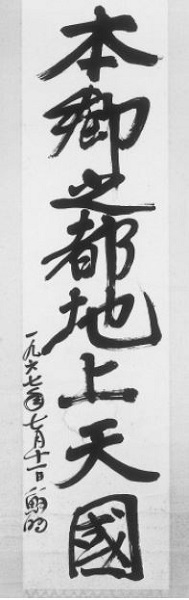 本郷之都地上天國
一九六七年七月十一日